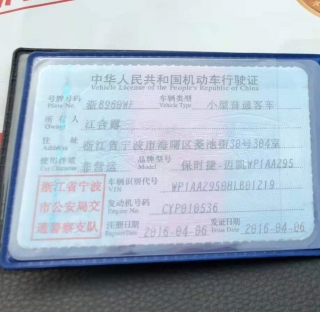 中华人民共和国机动车行驶证
Vehicle License of the People's Republic of China
号牌号码 浙B960WF 车辆类型 小型普通客车
Plate No. Vehicle Type
所有人
Owner
住址 浙江省宁波市海曙区 304室
Address
使用性质 非营运 品牌型号 保时捷-迈凯WP1AA295
Use Character Model
浙江省宁波 车辆识别代号 WP1AA2950HLB01219
VIN
市公安局交 发动机号码 CYP010536
Engine No.
通警察支队 注册日期 2016-04-06 发证日期 2016-04-06
Register Date Issue Date